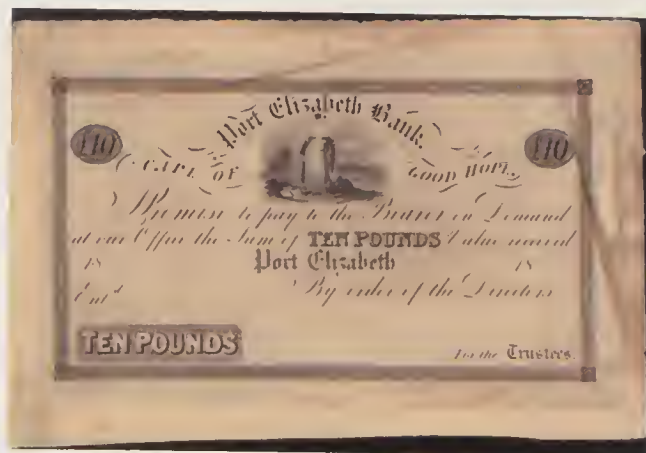 Port Elizabeth Bank.
£10 £10
CAPE OF GOOD HOPE.
Promise to pay to the Bearer on Demand
at our Office the Sum of TEN POUNDS Value received
18 Port Elizabeth 18
Entd By order of the Directors
TEN POUNDS
For the Trustees.